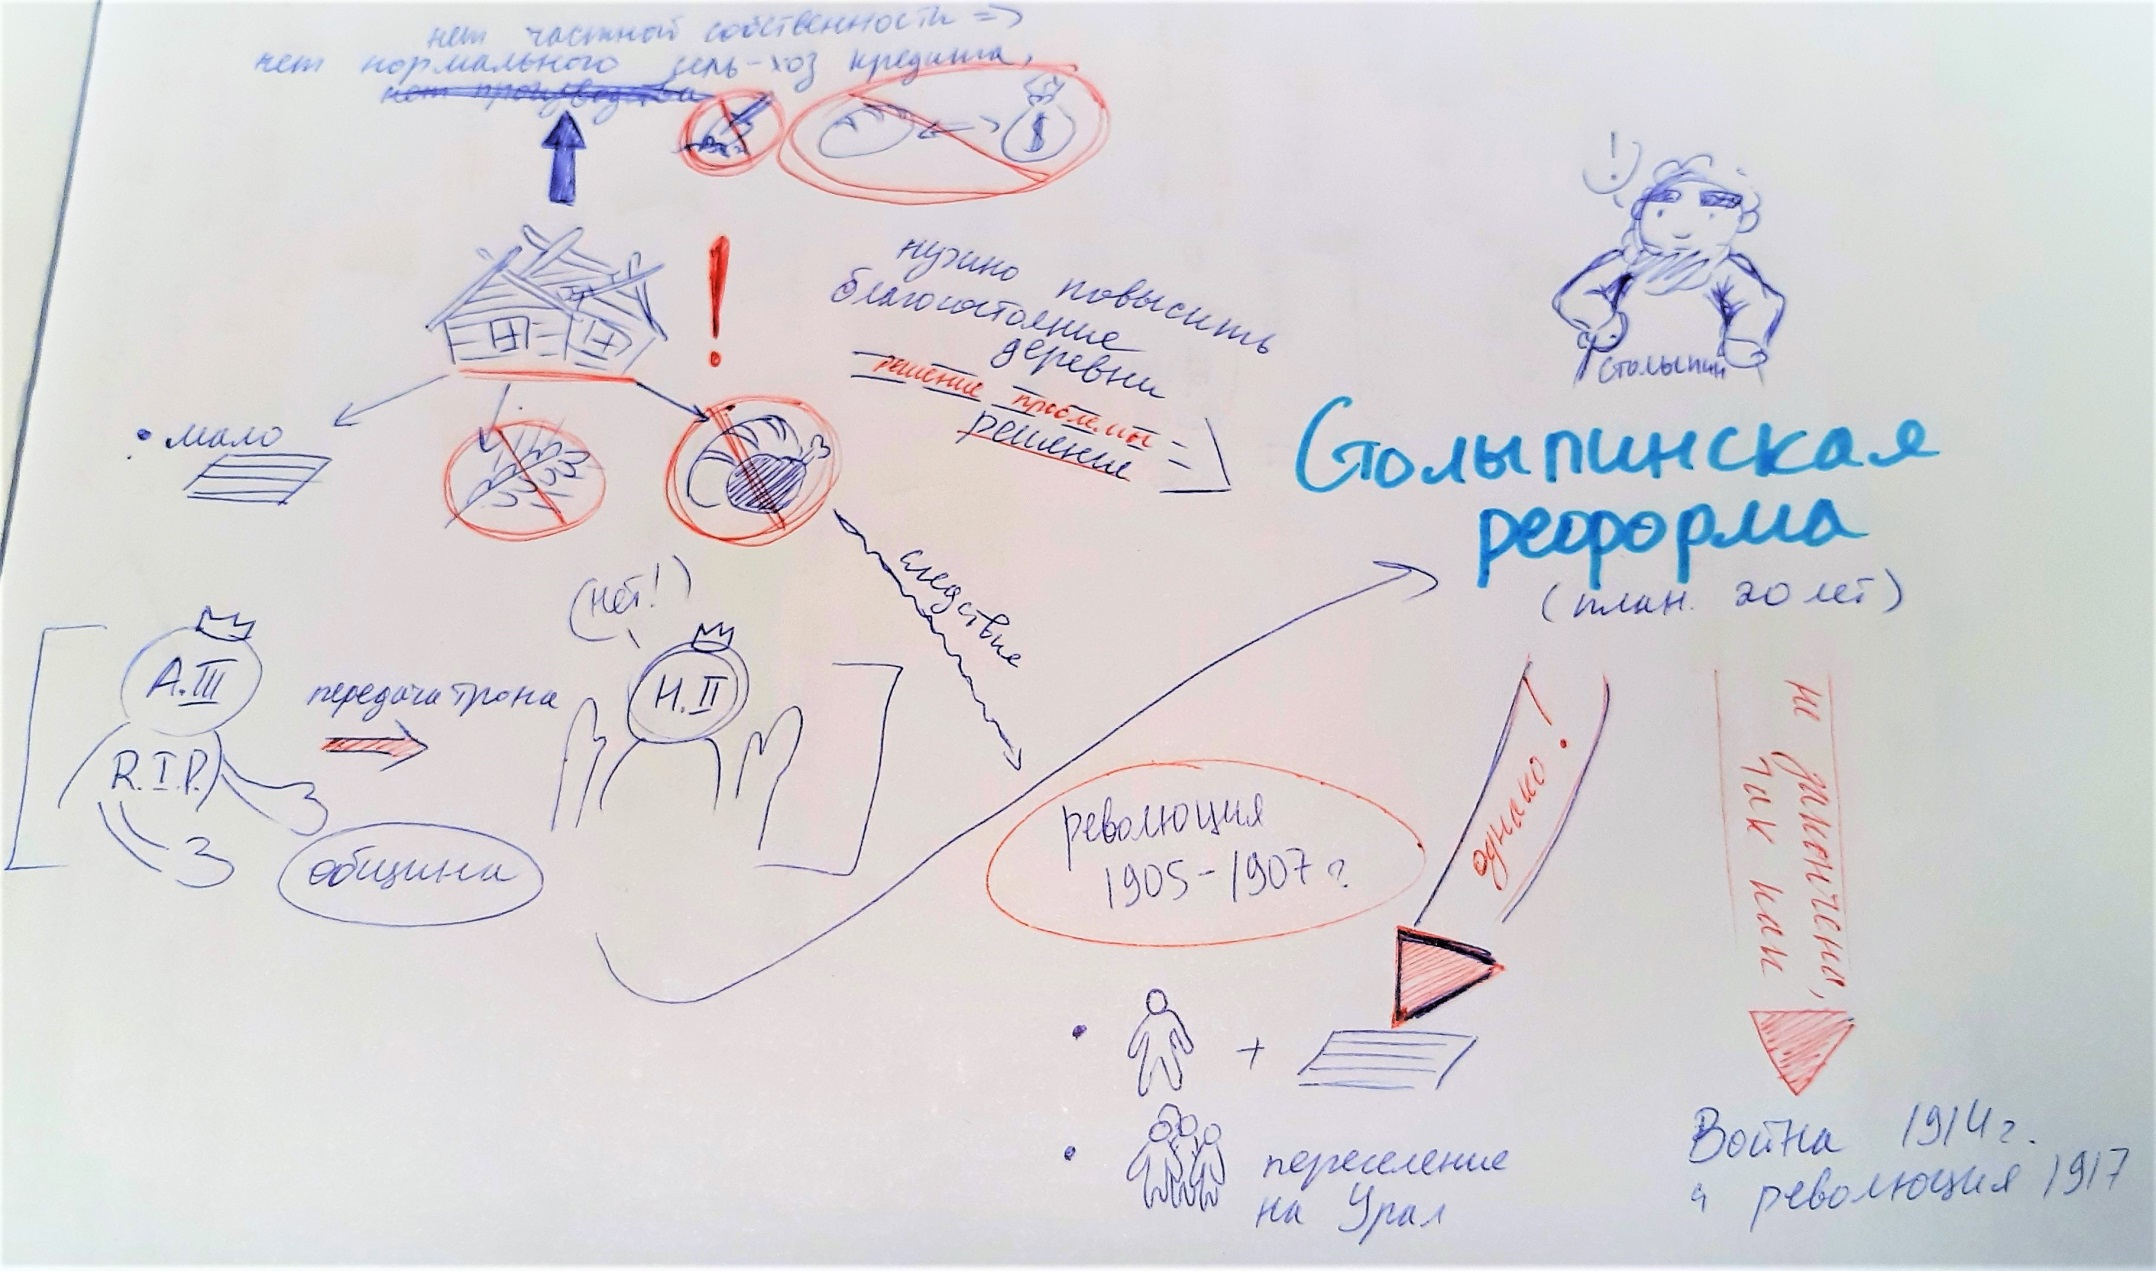 нет частной собственности =>
нет нормального сель-хоз кредита,
нет производства
$
!
нужно повысить
благосостояние
деревни
решение проблемы
решение
!
Столыпин
Столыпинская
реформа
(план. 20 лет)
• мало
следствие
(нет!)
А.III
R.I.P.
передача трона
Н.II
община
революция
1905-1907 г
однако!
не закончена,
так как
+
переселение
на Урал
Война 1914 г.
и революция 1917